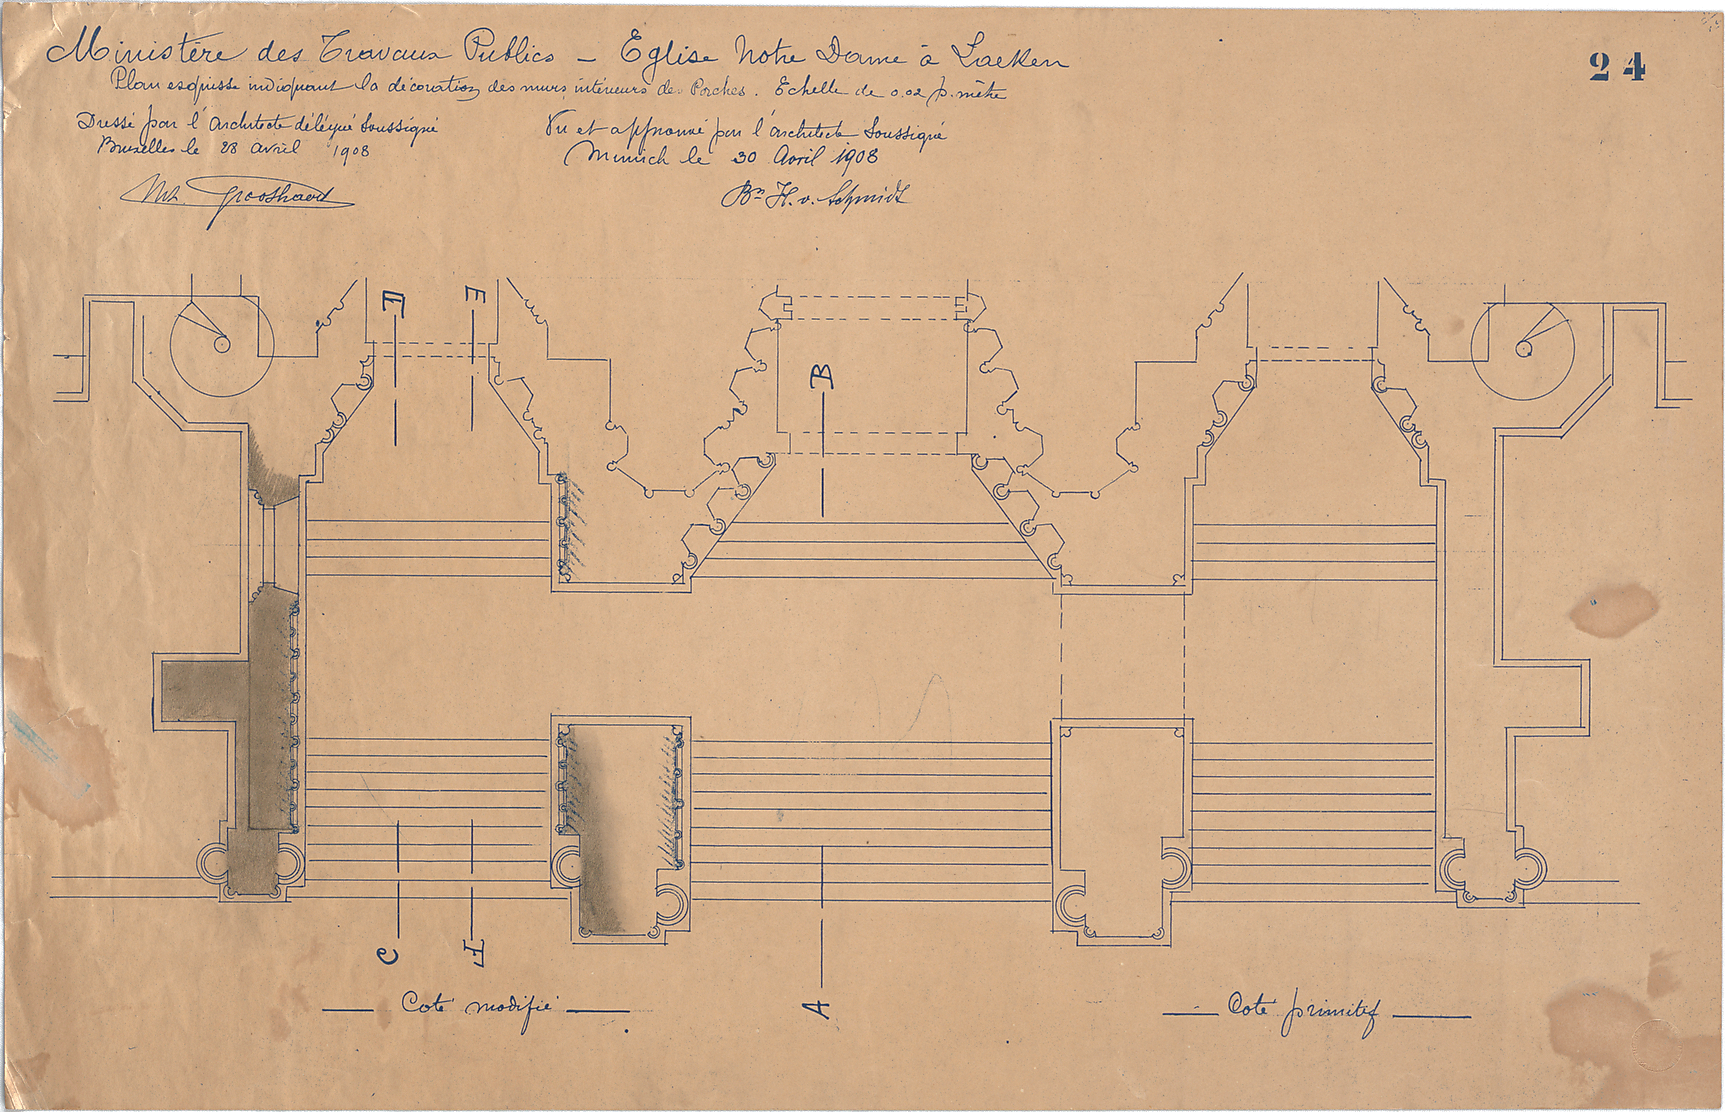 Ministère des Travaux Publics – Eglise Notre Dame à Laeken
24
Plan esquisse indiquant la décoration des murs intérieurs des Porches. Echelle de 0.02 p. mètre
Dressé par l'Architecte délégué Soussigné
Bruxelles le 28 avril 1908
Vu et approuvé par l'architecte Soussigné
Munich le 30 Avril 1908
Bn H. v. Schmidt
D
E
B
C
F
A
Coté modifié
Coté primitif